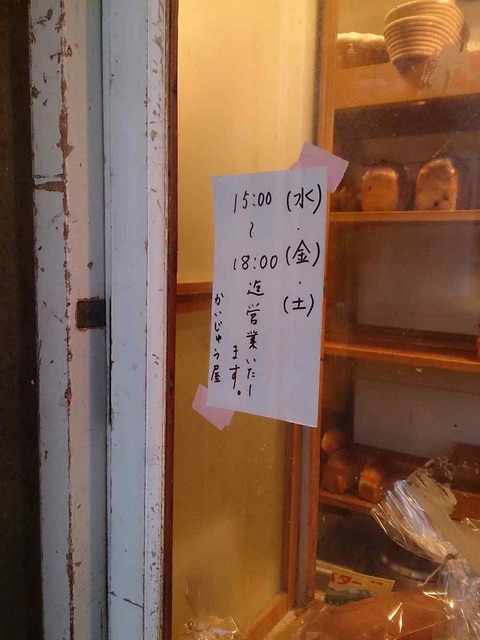 (水)・(金)・(土)
15:00
~
18:00
迄営業いたし
ます。
かいじゅう屋
バター